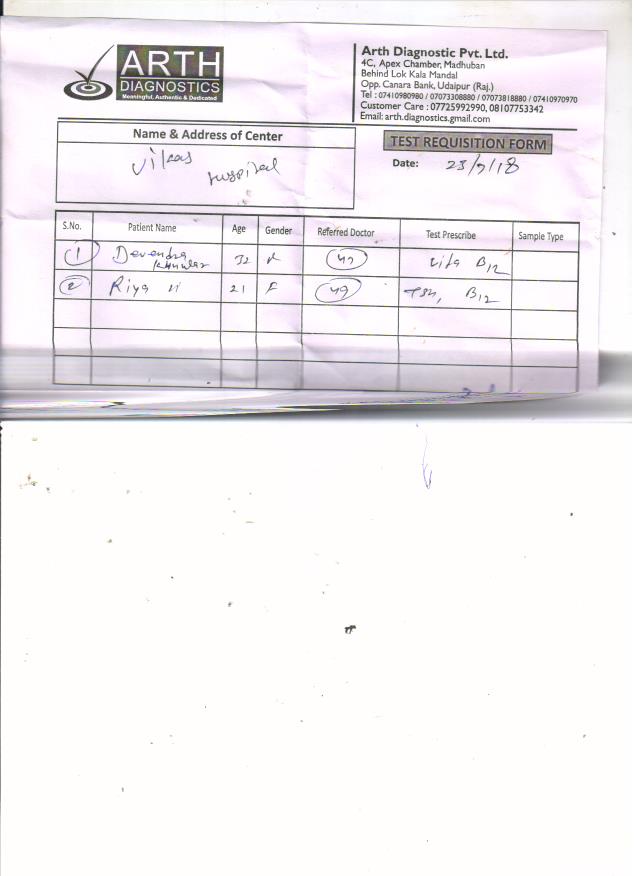 ARTH
DIAGNOSTICS
Meaningful, Authentic & Dedicated
Arth Diagnostic Pvt. Ltd.
4C, Apex Chamber, Madhuban
Behind Lok Kala Mandal
Opp. Canara Bank, Udaipur (Raj.)
Tel : 07410980980 / 07073308880 / 07073818880 / 07410970970
Customer Care : 07725992990, 08107753342
Email: arth.diagnostics.gmail.com
Name & Address of Center
vikas
hospital
TEST REQUISITION FORM
Date: 23/7/18
S.No. Patient Name Age Gender Referred Doctor Test Prescribe Sample Type
1 Devendra 32 B12
2 Riya 21 F 49 TSH, B12